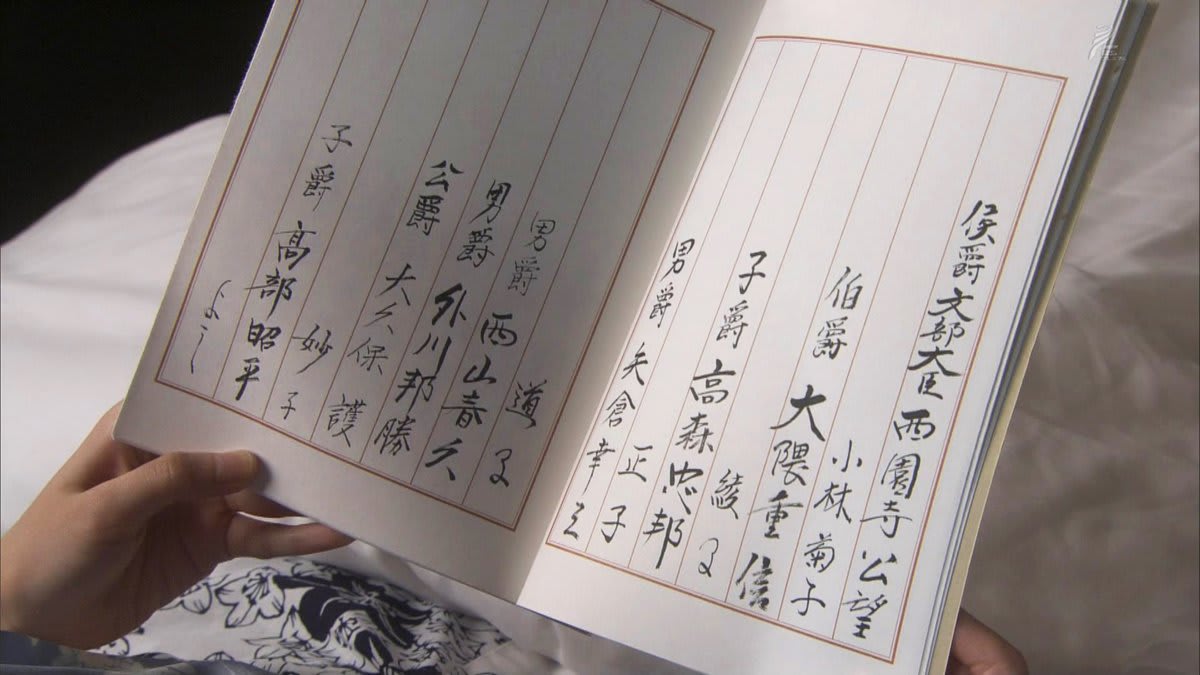 侯爵 文部大臣 西園寺公望
小林菊子
伯爵 大隈重信
綾子
子爵 高森忠邦
正子
男爵 矢倉幸
道子
男爵 西山春久
男爵 外川邦勝
公爵 大久保護
妙子
子爵 高部昭平